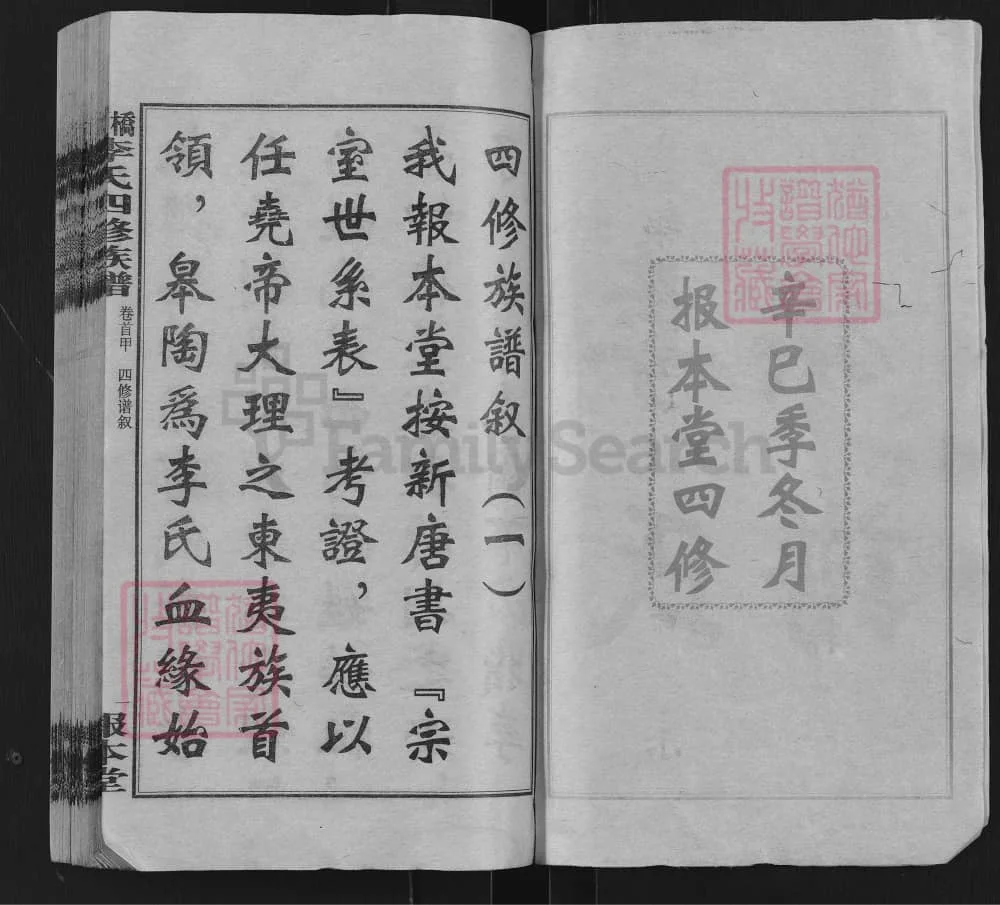 辛巳季冬月
报本堂四修
四修族譜叙（一）
我報本堂按新唐書『宗
室世系表』考證，應以
任堯帝大理之東夷族首
領，皋陶爲李氏血緣始
橋李氏四修族譜
卷首甲 四修谱叙
報本堂
FamilySearch